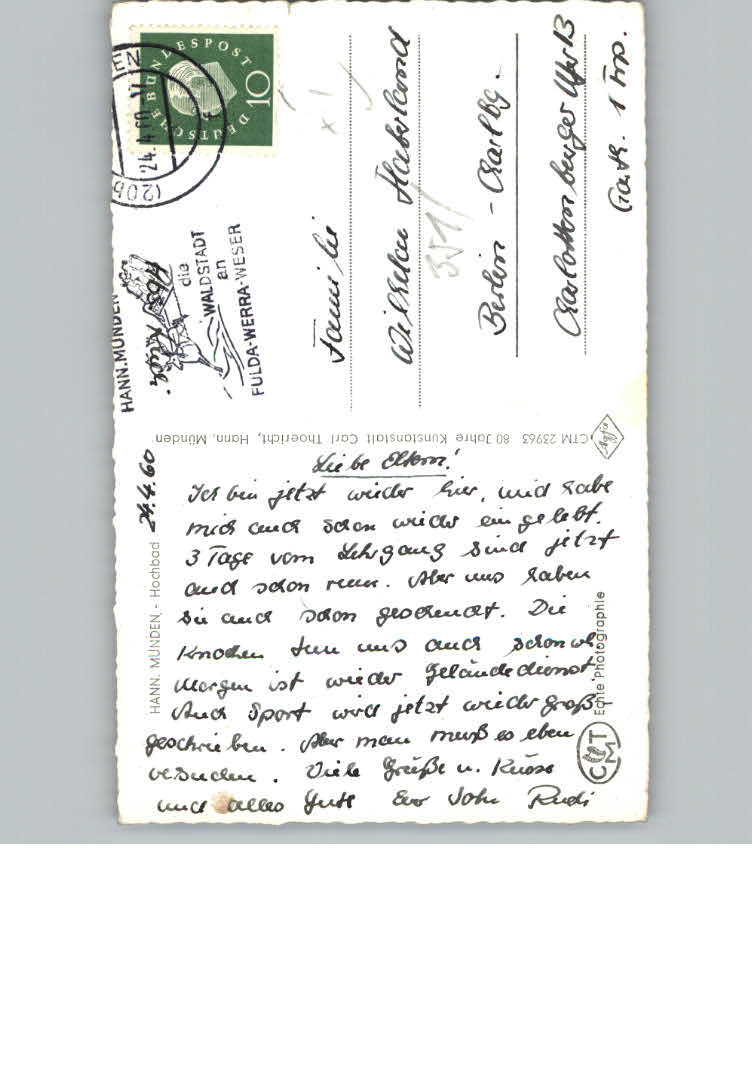 DEUTSCHE BUNDESPOST
10
24.4.60
(20b)
HANN.MÜNDEN
die
WALDSTADT
an
FULDA-WERRA-WESER
Familie
Wilhelm Haberland
351/
Berlin - Charlbg.
Charlottenburger Ufer 13
Garth. 1 Trp.
CTM 23963 80 Jahre Kunstanstalt Carl Thoericht, Hann. Münden
Agfa
HANN. MÜNDEN - Hochbad
24.4.60
Liebe Eltern!
Ich bin jetzt wieder hier, und habe
mich auch schon wieder eingelebt.
3 Tage vom Lehrgang sind jetzt
auch schon rum. Aber uns haben
sie auch schon gescheucht. Die
Knochen tun uns auch schon weh
Morgen ist wieder Geländedienst.
Auch Sport wird jetzt wieder groß
geschrieben. Aber man muß es eben
versuchen. Viele Grüße u. Küsse
und alles Gute Euer Sohn Rudi
Echte Photographie
CTM